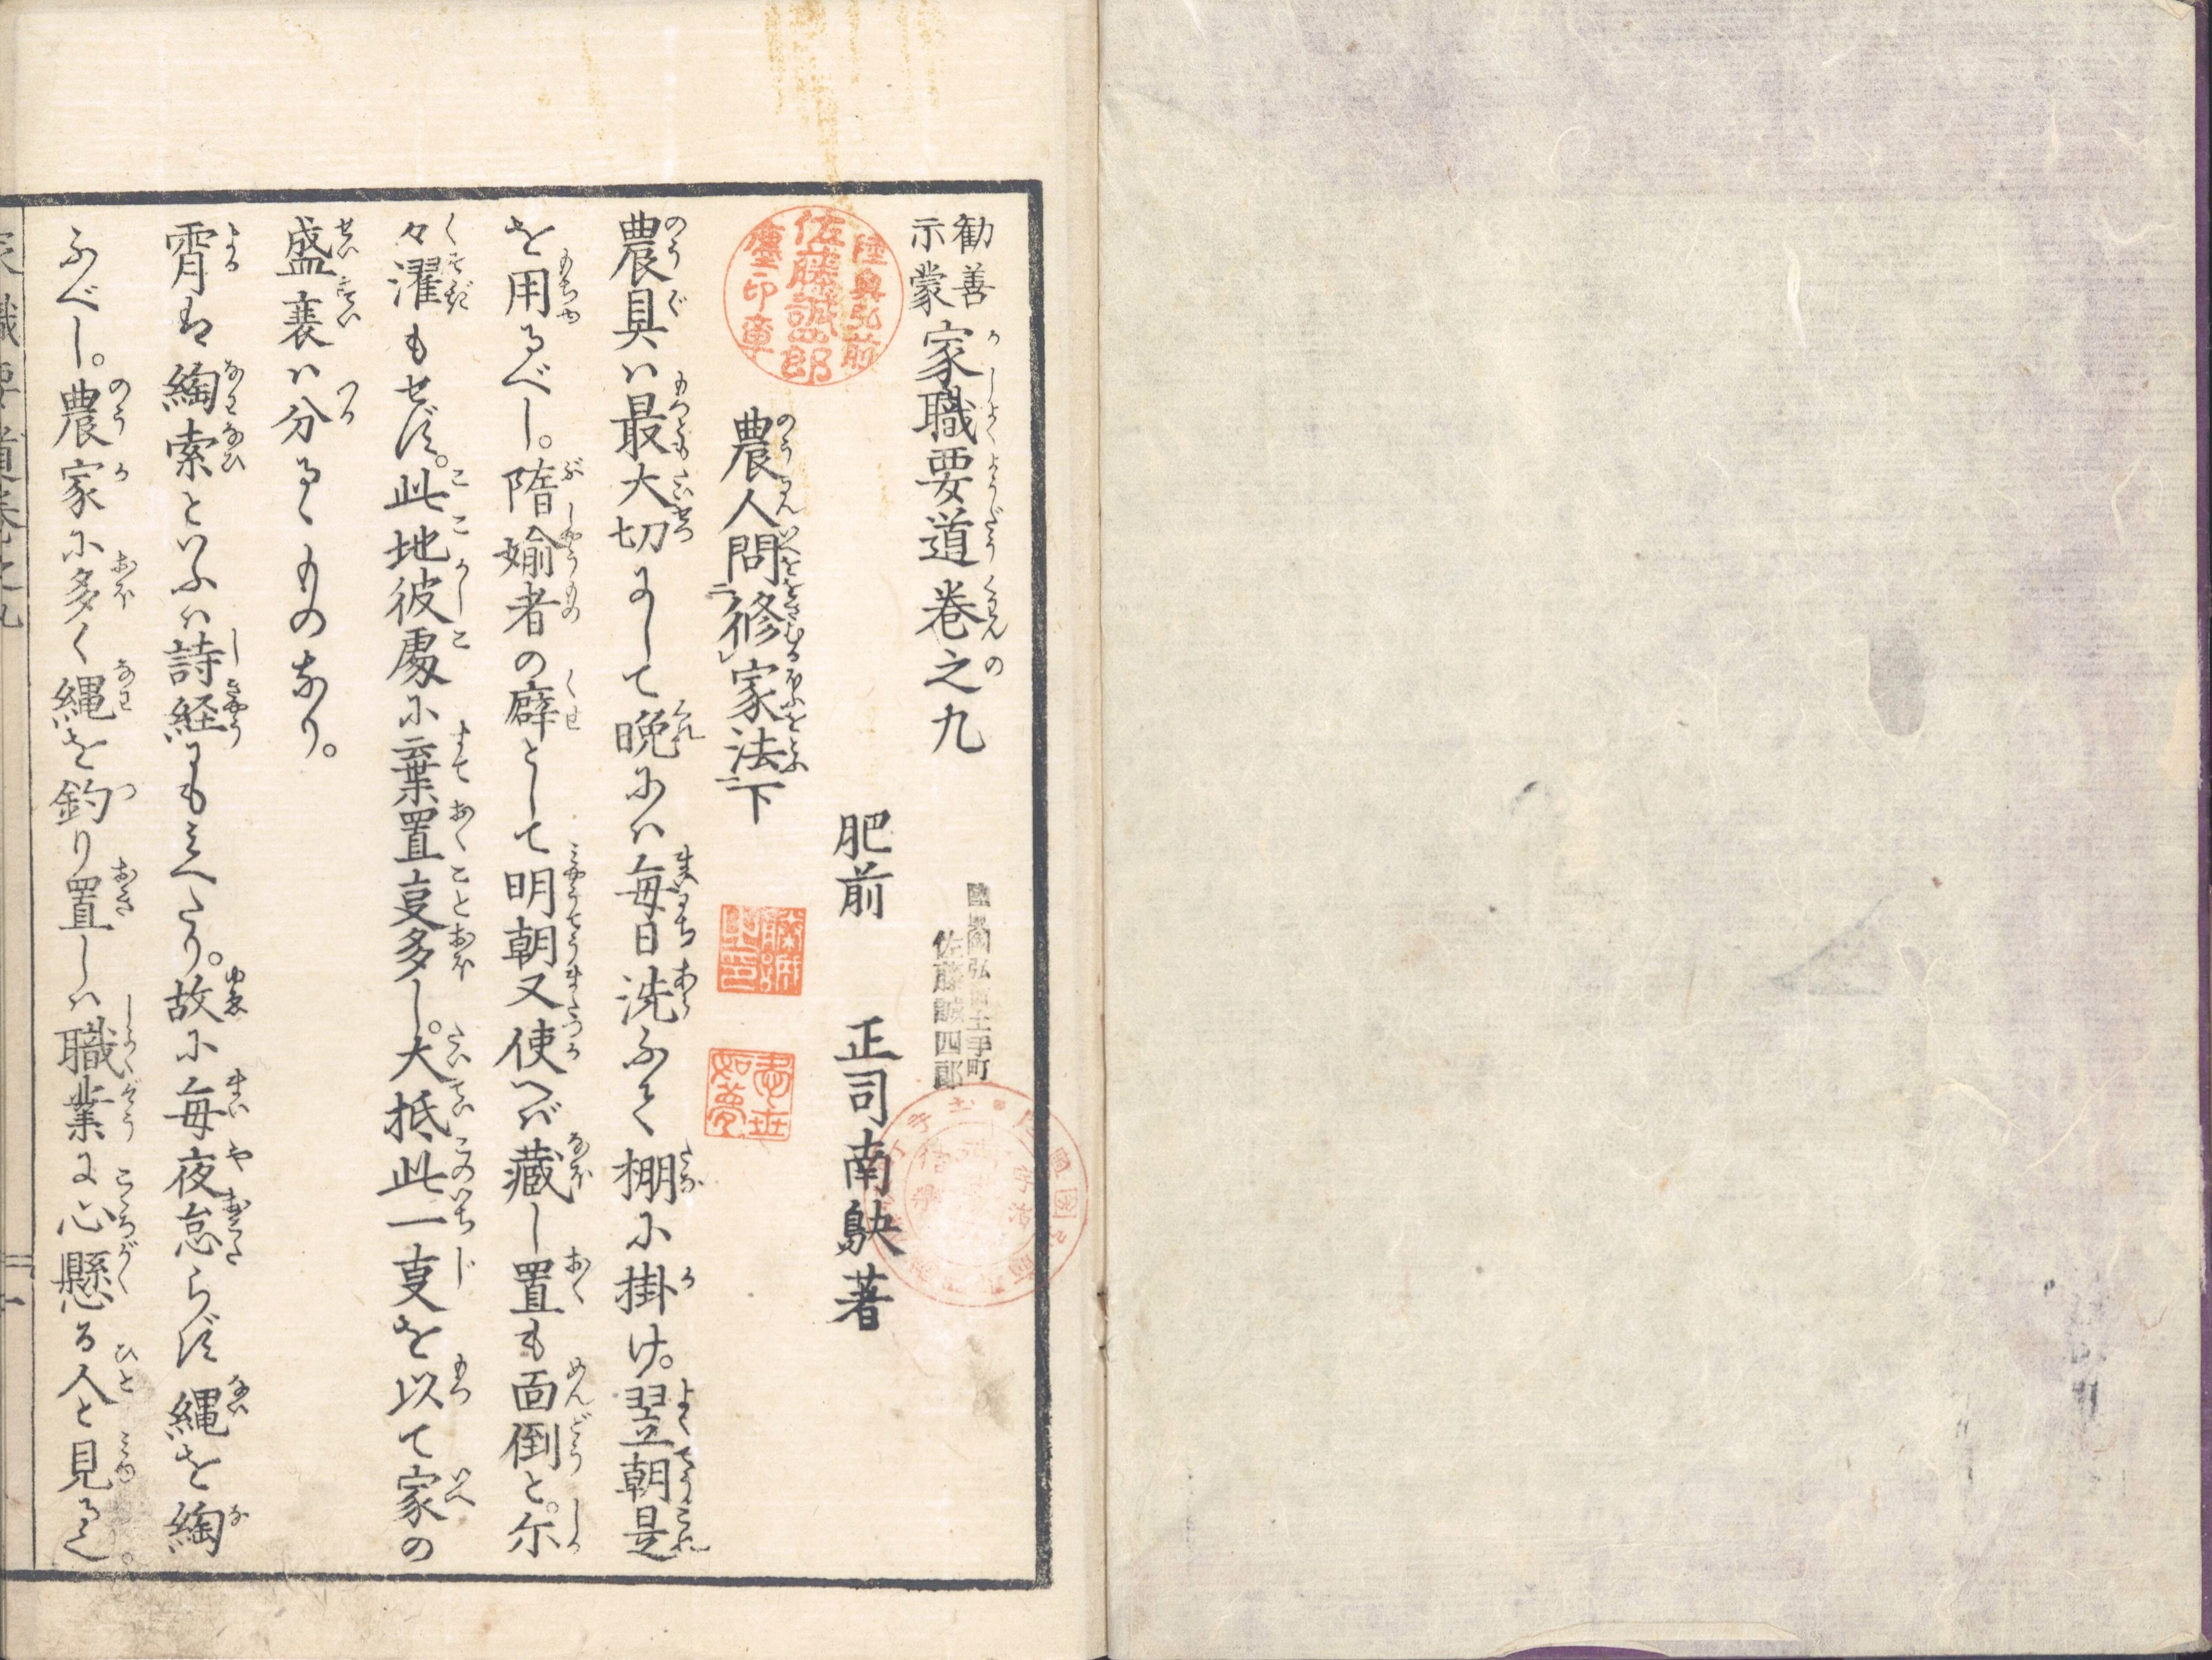 勧善
示蒙
家職要道巻之九
肥前　正司南鴃著
陸奥弘前
佐藤誠四郎
佐藤誠四郎
農人問㆑修㆓家法㆒下
農具ハ最大切にして晩にハ毎日洗ふて棚に掛け。翌朝是
を用るべし。隋媮者の癖として明朝又使へバ蔵し置も面倒と。尓
々濯もせず。此地彼處に棄置㕝多し。大抵此一㕝を以て家の
盛衰ハ分るゝものなり。
宵は綯索といふハ詩経にもみへたり。故に毎夜怠らず縄を綯
ふべし。農家に多く縄を釣り置しハ職業に心懸る人と見るべし。
家職要道巻之九
一